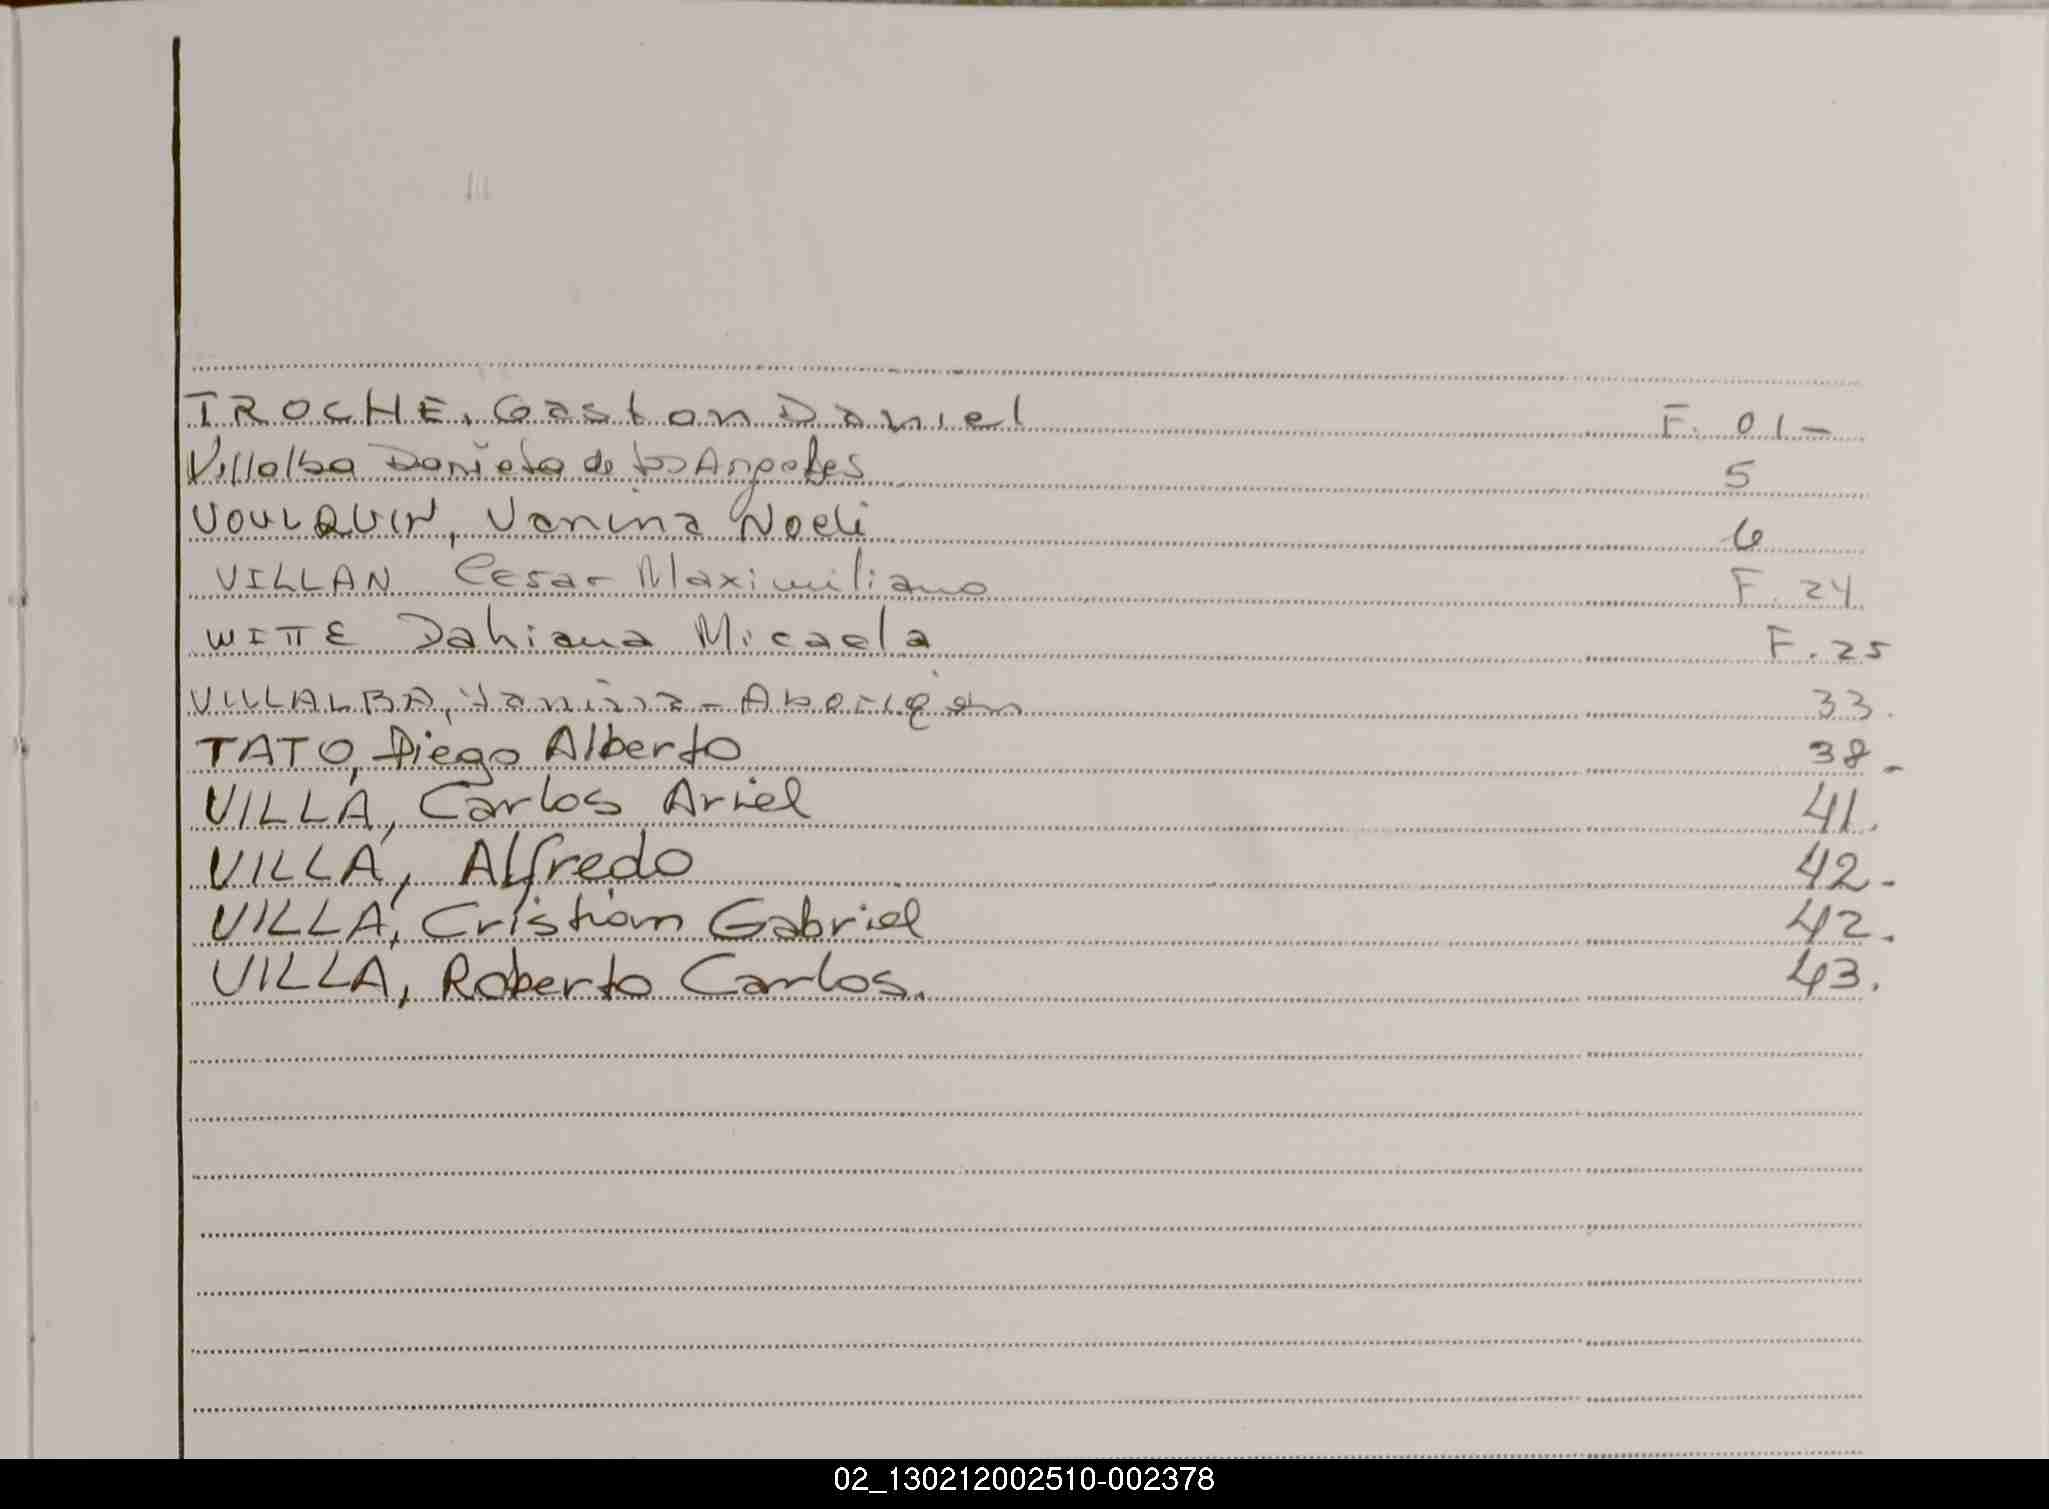 TROCHE, Gaston Daniel F. 01-
Villalba Daniela de los Angeles 5
VOULQUIN, Vanina Noeli 6
VILLAN Cesar Maximiliano F. 24
WITTE Dahiana Micaela F. 25
VILLALBA, Yanina - Aborigen 33.
TATO, Diego Alberto 38.-
VILLA, Carlos Ariel 41.
VILLA, Alfredo 42.-
VILLA, Cristian Gabriel 42.
VILLA, Roberto Carlos. 43.
02_130212002510-002378